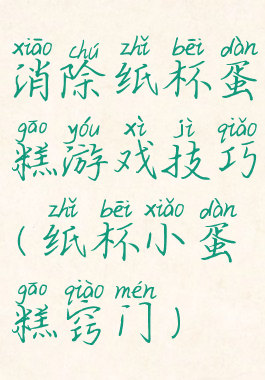 xiāo chú zhǐ bēi dàn
消除纸杯蛋
gāo yóu xì jì qiǎo
糕游戏技巧
zhǐ bēi xiǎo dàn
(纸杯小蛋
gāo qiào mén
糕窍门)